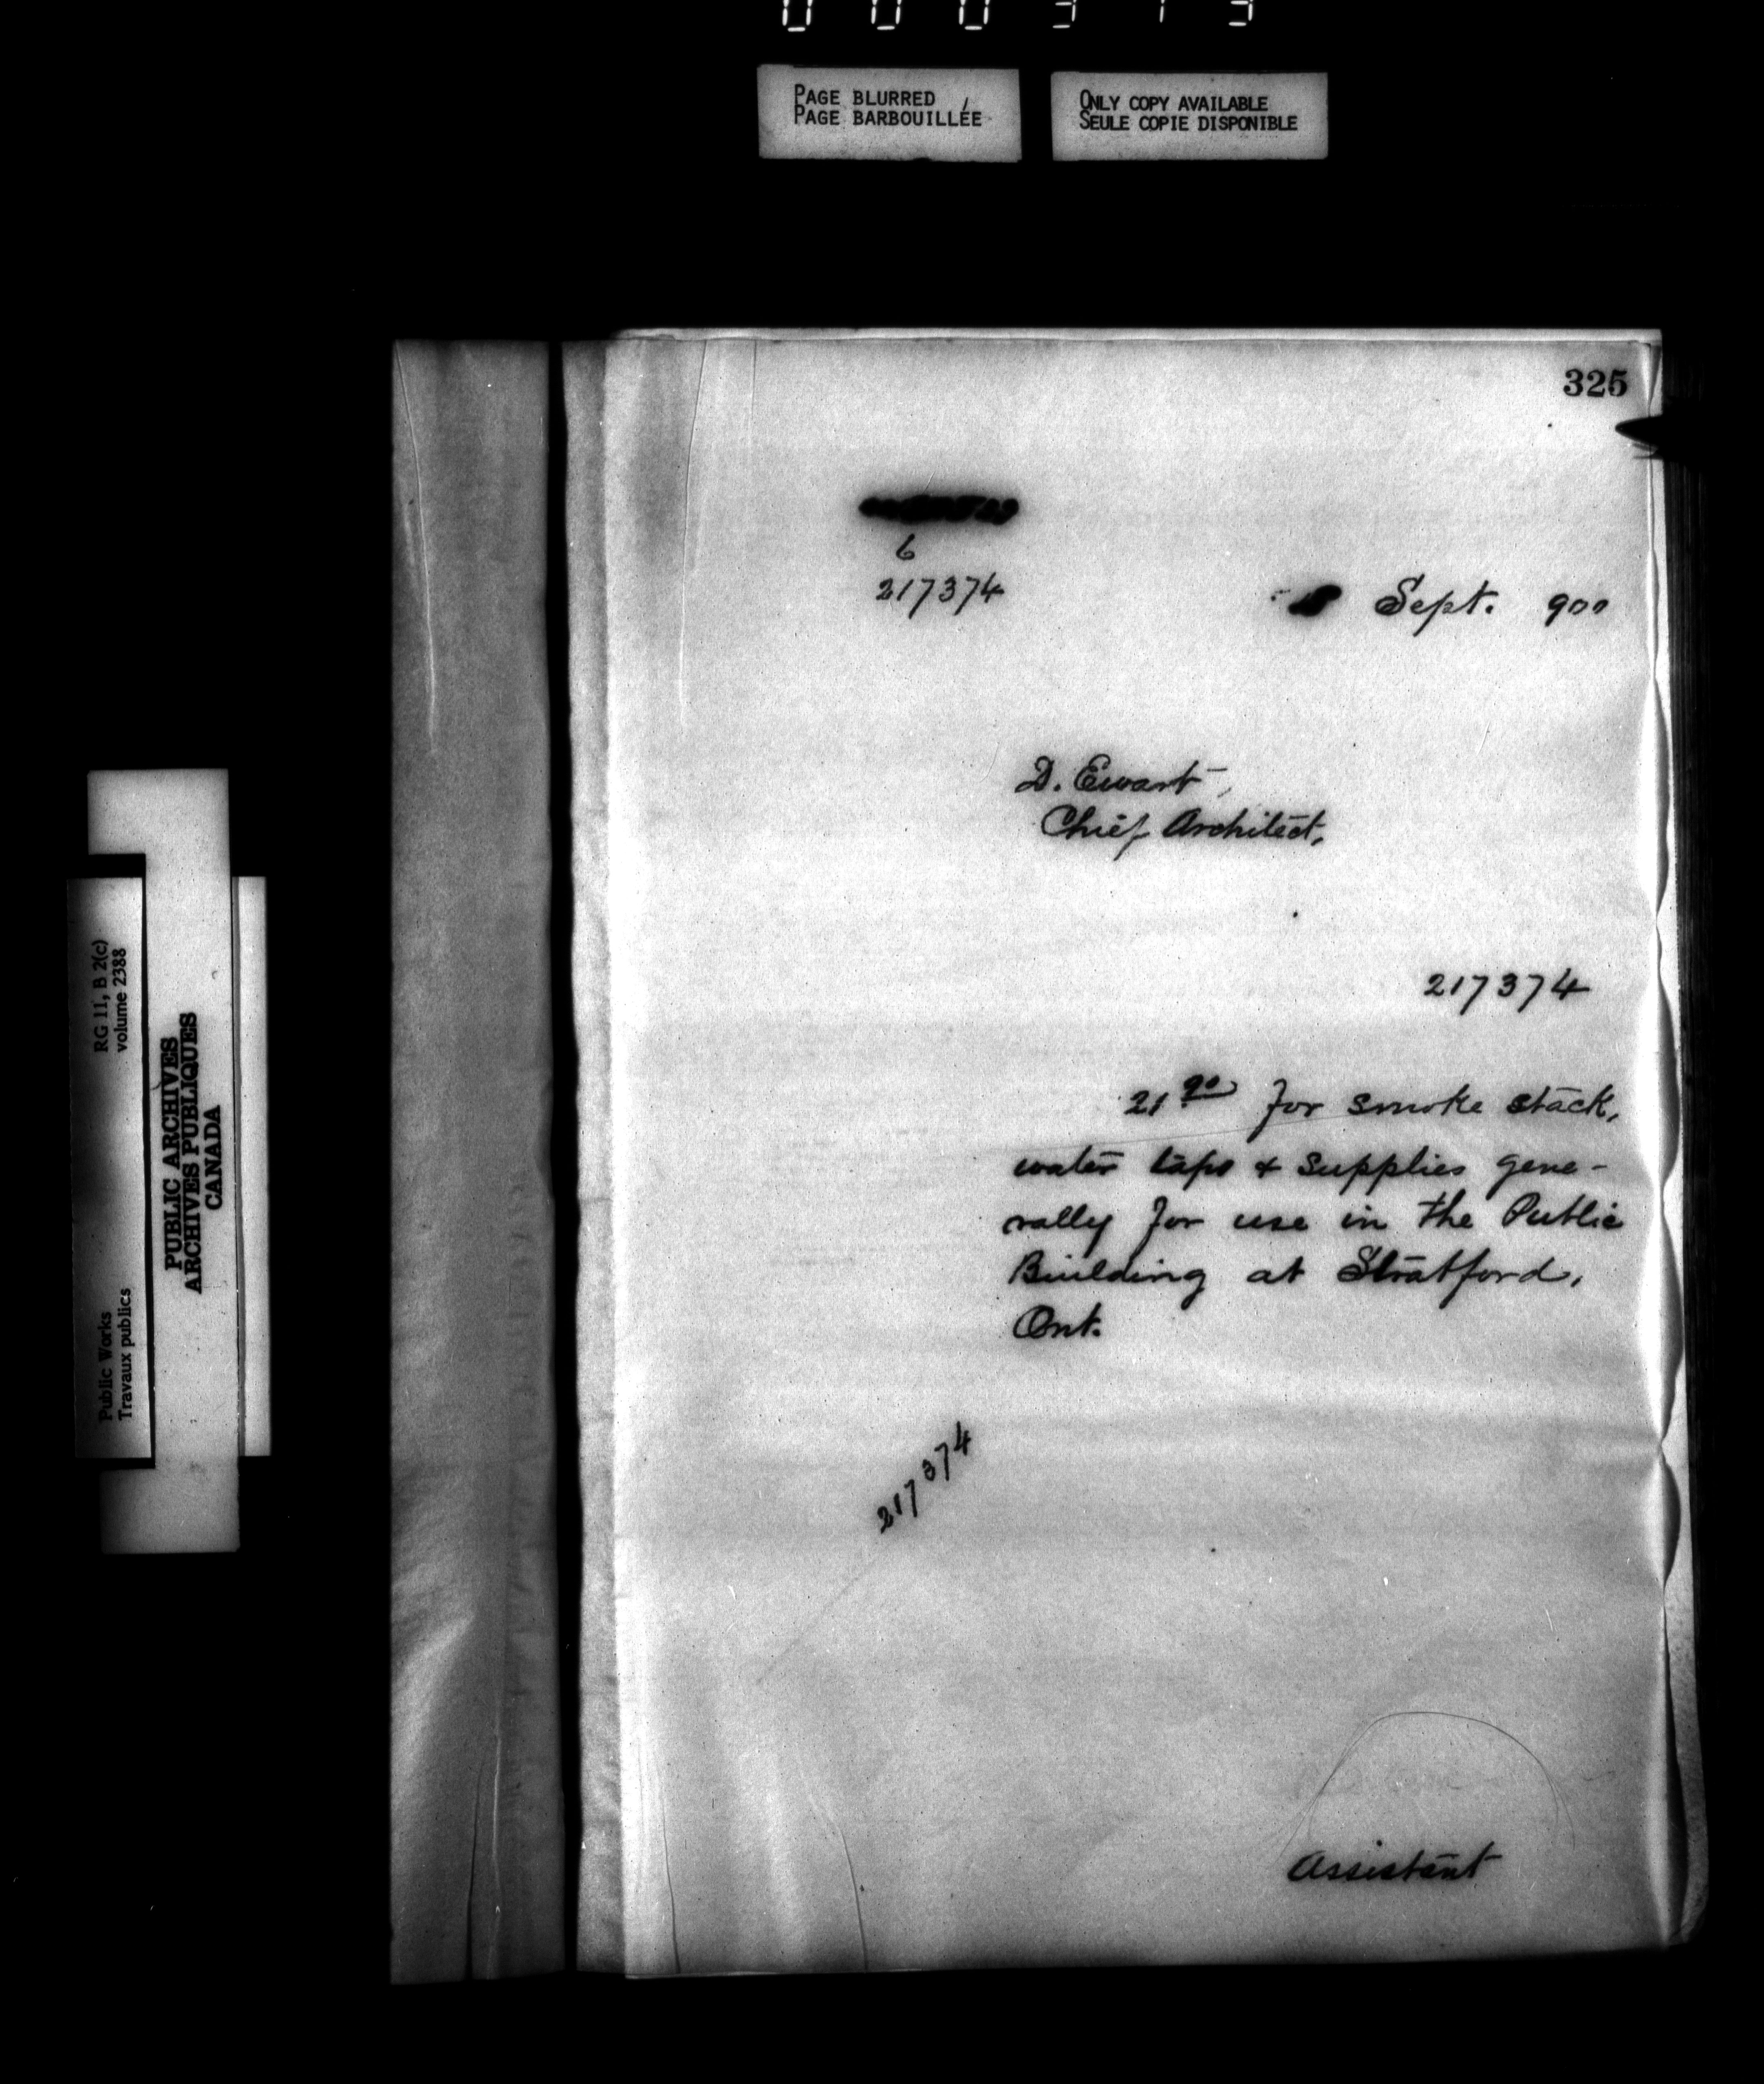 PAGE BLURRED
PAGE BARBOUILLÉE
ONLY COPY AVAILABLE
SEULE COPIE DISPONIBLE
325
6
217374
Sept. 900
D. Ewart,
Chief Architect,
217374
21 90 for smoke stack,
water taps & supplies gene-
rally for use in the Public
Building at Stratford,
Ont.
217374
Assistant
RG 11, B 2(c)
volume 2388
Public Works
Travaux publics
PUBLIC ARCHIVES
ARCHIVES PUBLIQUES
CANADA